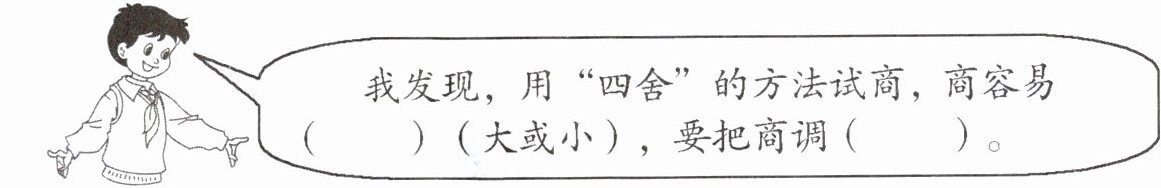 我发现，用“四舍”的方法试商，商容易
（　　）（大或小），要把商调（　　）。